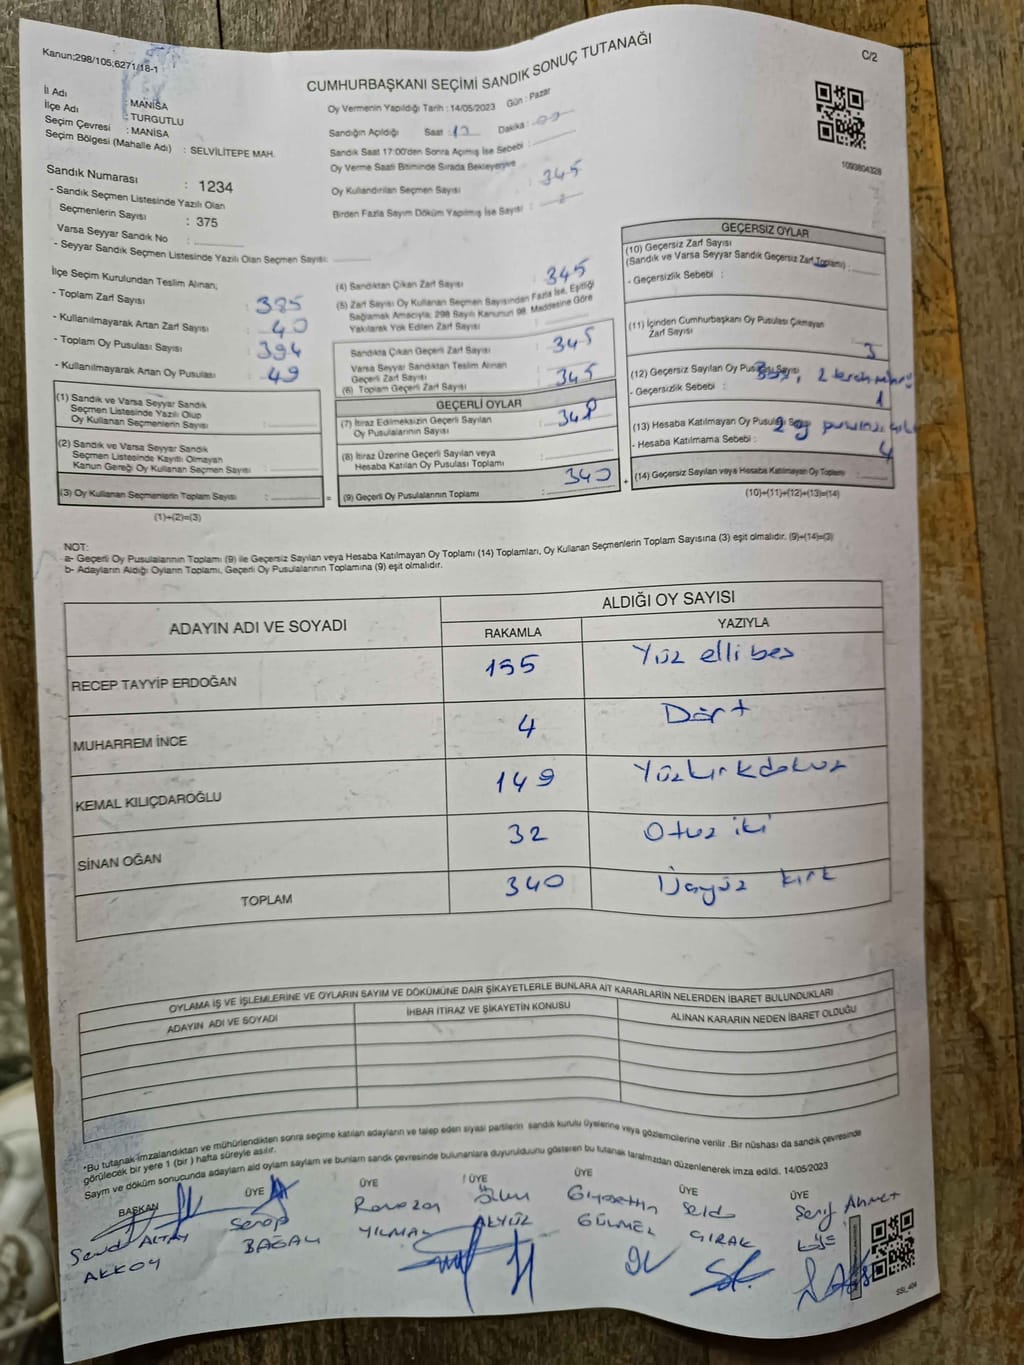 Kanun;298/105;6271/18-1
C/2
CUMHURBAŞKANI SEÇİMİ SANDIK SONUÇ TUTANAĞI
İl Adı : MANİSA
İlçe Adı : TURGUTLU
Seçim Çevresi : MANİSA
Seçim Bölgesi (Mahalle Adı) : SELVİLİTEPE MAH.
Oy Vermenin Yapıldığı Tarih : 14/05/2023 Gün : Pazar
Sandığın Açıldığı Saat : 17 Dakika :
Sandık Saat 17:00'den Sonra Açımış İse Sebebi :
Oy Verme Saati Bitiminde Sırada Bekleyenlye
Oy Kullandırılan Seçmen Sayısı : 345
Birden Fazla Sayım Döküm Yapılmış İse Sayısı :
1093804328
Sandık Numarası : 1234
- Sandık Seçmen Listesinde Yazılı Olan
Seçmenlerin Sayısı : 375
Varsa Seyyar Sandık No :
- Seyyar Sandık Seçmen Listesinde Yazılı Olan Seçmen Sayısı:
İlçe Seçim Kurulundan Teslim Alınan;
- Toplam Zarf Sayısı : 385
- Kullanılmayarak Artan Zarf Sayısı : 40
- Toplam Oy Pusulası Sayısı : 394
- Kullanılmayarak Artan Oy Pusulası : 49
(1) Sandık ve Varsa Seyyar Sandık
Seçmen Listesinde Yazılı Olup
Oy Kullanan Seçmenlerin Sayısı :
(2) Sandık ve Varsa Seyyar Sandık
Seçmen Listesinde Kayıtlı Olmayan
Kanun Gereği Oy Kullanan Seçmen Sayısı :
(3) Oy Kullanan Seçmenlerin Toplam Sayısı : =
(1)+(2)=(3)
(4) Sandıktan Çıkan Zarf Sayısı : 345
(5) Zarf Sayısı Oy Kullanan Seçmen Sayısından Fazla İse, Eşitliği
Sağlamak Amacıyla; 298 Sayılı Kanunun 98. Maddesine Göre
Yakılarak Yok Edilen Zarf Sayısı :
Sandıkta Çıkan Geçerli Zarf Sayısı : 345
Varsa Seyyar Sandıktan Teslim Alınan
Geçerli Zarf Sayısı :
(6) Toplam Geçerli Zarf Sayısı : 345
GEÇERLİ OYLAR
(7) İtiraz Edilmeksizin Geçerli Sayılan
Oy Pusulalarının Sayısı :
(8) İtiraz Üzerine Geçerli Sayılan veya
Hesaba Katılan Oy Pusulası Toplamı :
(9) Geçerli Oy Pusulalarının Toplamı : 340 +
GEÇERSİZ OYLAR
(10) Geçersiz Zarf Sayısı
(Sandık ve Varsa Seyyar Sandık Geçersiz Zarf Toplamı) :
- Geçersizlik Sebebi :
(11) İçinden Cumhurbaşkanı Oy Pusulası Çıkmayan
Zarf Sayısı :
3
(12) Geçersiz Sayılan Oy Pusulası Sayısı
- Geçersizlik Sebebi :
1
(13) Hesaba Katılmayan Oy Pusulası Sayısı
- Hesaba Katılmama Sebebi :
4
(14) Geçersiz Sayılan veya Hesaba Katılmayan Oy Toplamı :
(10)+(11)+(12)+(13)=(14)
NOT:
a- Geçerli Oy Pusulalarının Toplamı (9) ile Geçersiz Sayılan veya Hesaba Katılmayan Oy Toplamı (14) Toplamları, Oy Kullanan Seçmenlerin Toplam Sayısına (3) eşit olmalıdır. (9)+(14)=(3)
b- Adayların Aldığı Oyların Toplamı, Geçerli Oy Pusulalarının Toplamına (9) eşit olmalıdır.
ADAYIN ADI VE SOYADI
ALDIĞI OY SAYISI
RAKAMLA YAZIYLA
RECEP TAYYİP ERDOĞAN 155 Yüz elli beş
MUHARREM İNCE 4 Dört
KEMAL KILIÇDAROĞLU 149 Yüzkırkdokuz
SİNAN OĞAN 32 Otuz iki
TOPLAM 340 Üçyüz kırk
OYLAMA İŞ VE İŞLEMLERİNE VE OYLARIN SAYIM VE DÖKÜMÜNE DAİR ŞİKAYETLERLE BUNLARA AİT KARARLARIN NELERDEN İBARET BULUNDUKLARI
ADAYIN ADI VE SOYADI İHBAR İTİRAZ VE ŞİKAYETİN KONUSU ALINAN KARARIN NEDEN İBARET OLDUĞU
*Bu tutanak imzalandıktan ve mühürlendikten sonra seçime katılan adayların ve talep eden siyasi partilerin sandık kurulu üyelerine veya gözlemcilerine verilir .Bir nüshası da sandık çevresinde
görülecek bir yere 1 (bir ) hafta süreyle asılır.
Sayım ve döküm sonucunda adayların ald oyların sayılarını ve bunların sandık çevresinde bulunanlara duyurulduğunu gösteren bu tutanak tarafımızdan düzenlenerek imza edildi. 14/05/2023
BAŞKAN ÜYE ÜYE ÜYE ÜYE ÜYE ÜYE
ALTAY AKKOY
Serap BAĞAL
Ramazan YILMAZ
AKYÜZ
GÜLMEZ
GIRAK
Şerif Ahmet
SSI_404